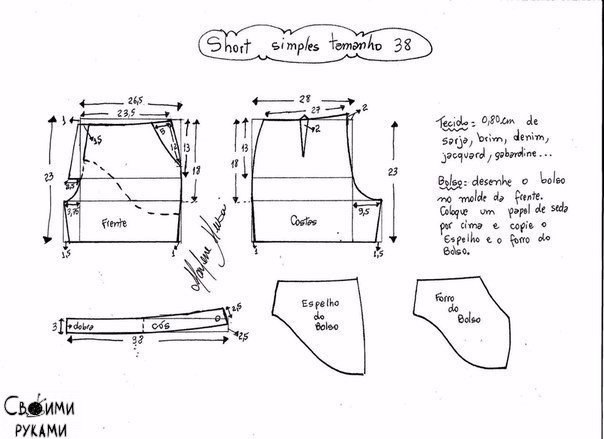 Short simples tamanho 38
26,5
23,5
1
23
1,5
8
12
13
18
2,5
3,75
Frente
1,5
1
28
27
2
2
23
13
18
9,5
Costas
1
1,5
Tecido: 0,80cm de
sarja, brim, denim,
jacquard, gabardine...
Bolso: desenhe o bolso
no molde da frente.
Coloque um papel de seda
por cima e copie o
Espelho e o forro do
Bolso.
3
dobra
cós
2,5
2,5
Espelho
do
Bolso
Forro
do
Bolso
Своими
руками